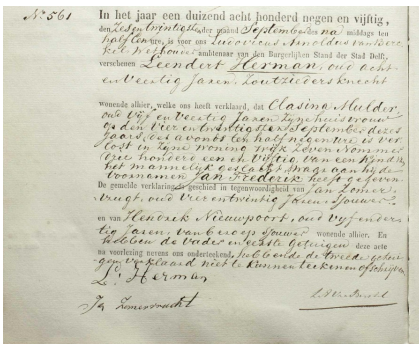 No. 561
In het jaar een duizend acht honderd negen en vijftig,
den Zesentwintigste der maand September des na middags ten
half een ure, is voor ons Ludovicus Arnoldus van Berc
kel Wethouder ambtenaar van den Burgerlijken Stand der Stad Delft,
verschenen Leendert Herman, oud Acht
en Veertig Jaren, Zoutzieders knecht
wonende alhier, welke ons heeft verklaard, dat Clasina Mulder
oud Vijf en Veertig Jaren Zijne huisvrouw
op den Vier en twintigsten September dezes
Jaars, des avonds ten half negen ure is ver
lost in Zijne woning Wijk Zeven Nommer
Drie honderd een en Vijftig van een Kind van
het mannelijk geslacht 't welk aan hij de
voornamen Jan Frederik heeft gegeven
De gemelde verklaring is geschied in tegenwoordigheid van Jan Zomer
vrugt, oud Vier en twintig Jaren, Sjouwer
en van Hendrik Nieuwpoort, oud Vijf en der
tig Jaren, van beroep Sjouwer wonende alhier. En
hebben de Vader en eerste getuigen deze acte
na voorlezing nevens ons onderteekend, hebbende de tweede getui
gen verklaard niet te kunnen teekenen of schrijven
L. Herman
Jan Zomervrucht